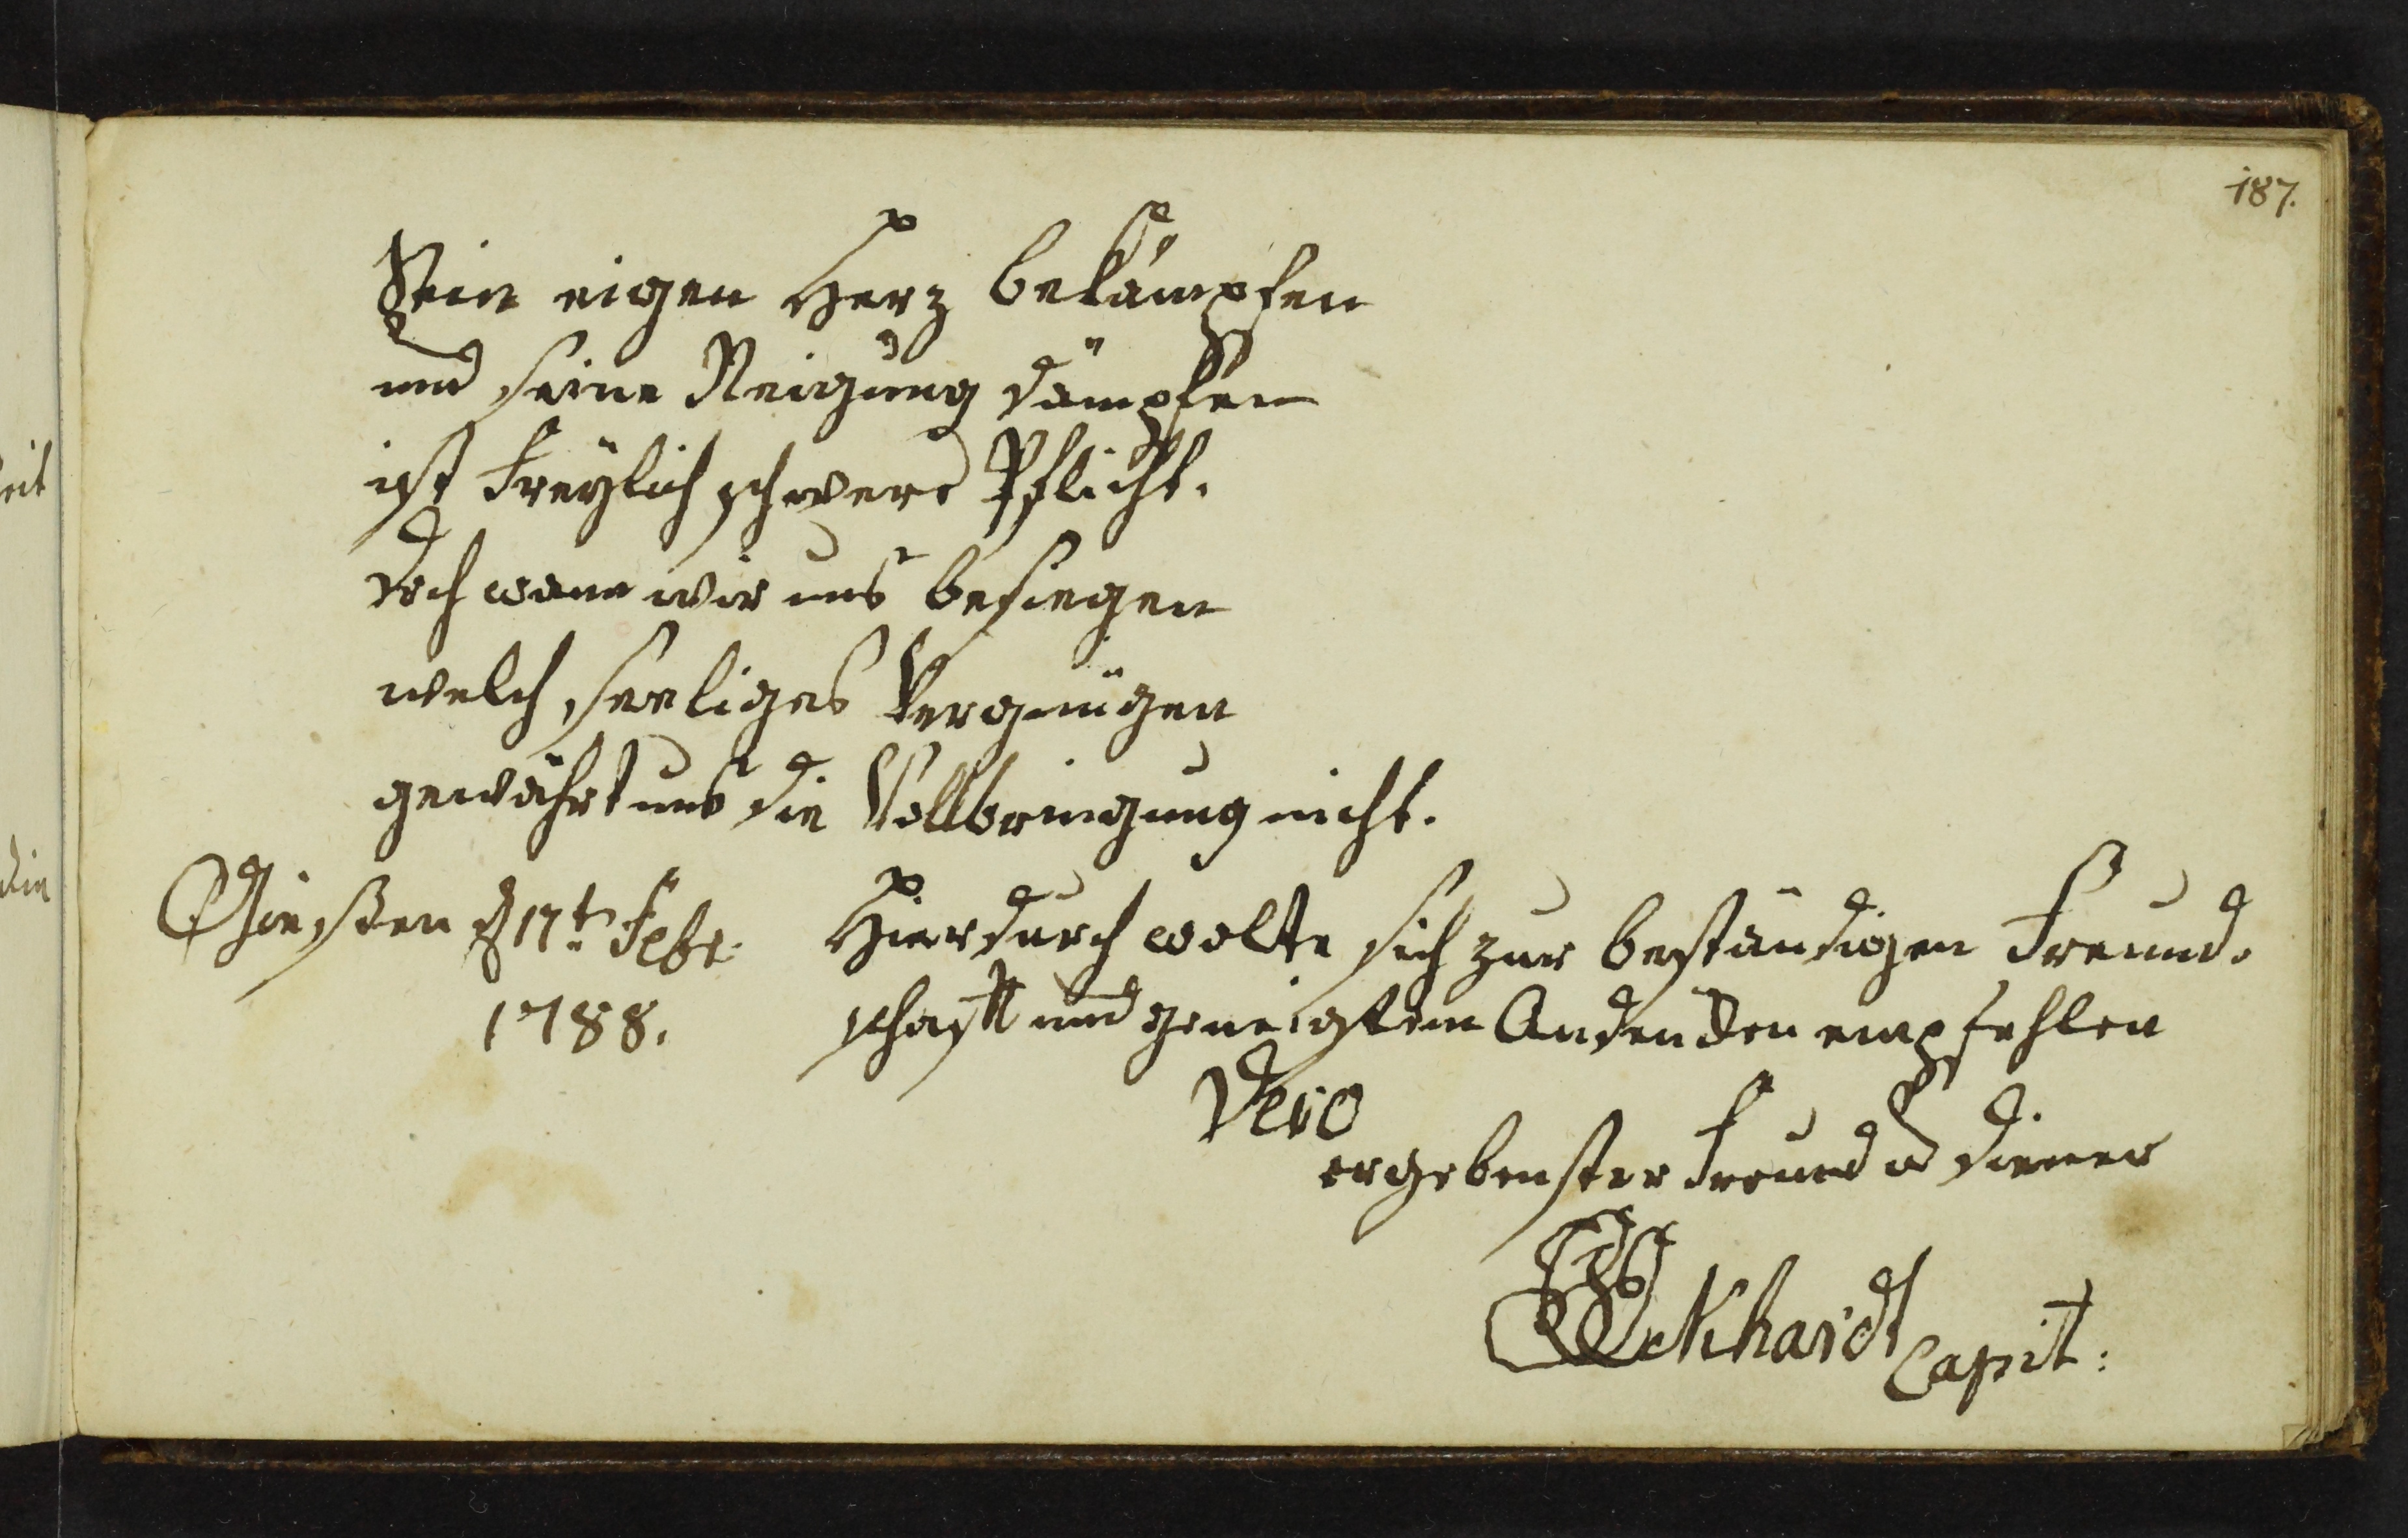 187.
Sein eigen Herz bekämpfen
und seine Neigung dämpfen
ist Freÿlich schwere Pflicht.
doch wann wir uns besiegen
welch seeliges Vergnügen
gewährt uns die Vollbringung nicht.
Giessen d 17t. Febr.
1788.
Hierdurch wolte sich zur beständigen Freund-
schafft und geneigtem Andencken empfehlen
Dero
ergebenster Freund u diener
Eckhardt Capit:
eit
die